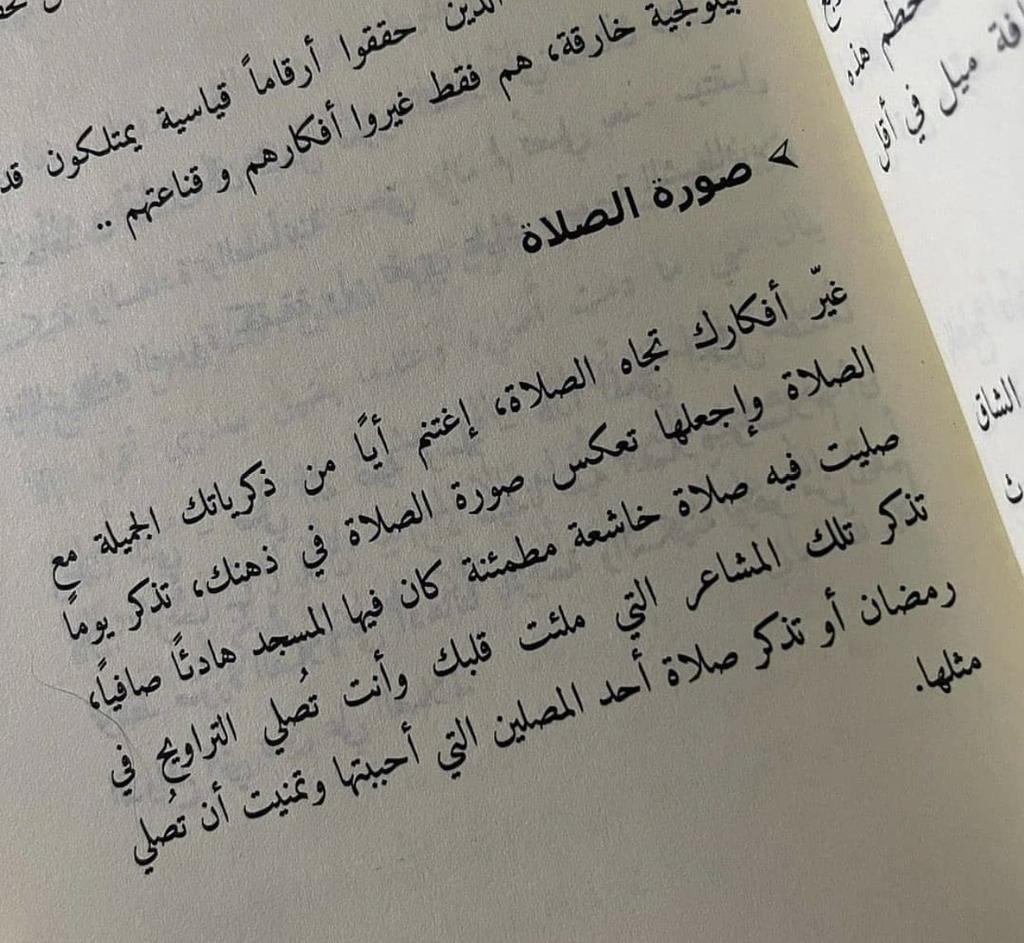 الذين حققوا أرقاماً قياسية يمتلكون
بيلوجية خارقة، هم فقط غيروا أفكارهم و قناعتهم ..
> صورة الصلاة
غيّر أفكارك تجاه الصلاة، إغتنم أياً من ذكرياتك الجميلة مع
الصلاة وإجعلها تعكس صورة الصلاة في ذهنك، تذكر يوماً
صليت فيه صلاة خاشعة مطمئنة كان فيها المسجد هادئاً صافياً،
تذكر تلك المشاعر التي ملئت قلبك وأنت تُصلي التراويح في
رمضان أو تذكر صلاة أحد المصلين التي أحببتها وتمنيت أن تُصلي
مثلها.
هذه
ميل في أقل
الشاق